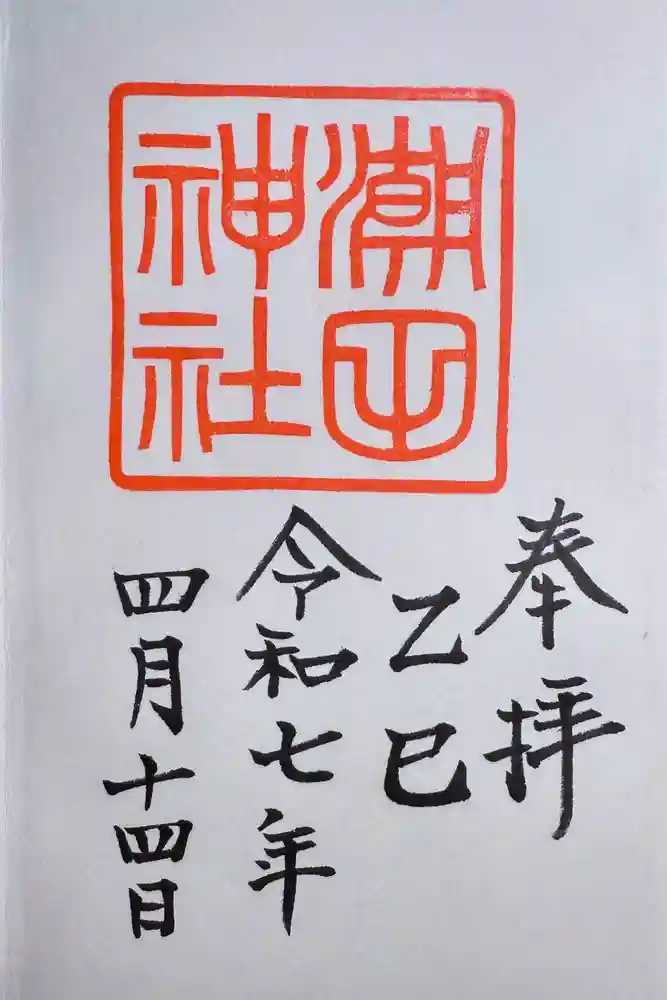 潮田
神社
奉拝
乙巳
令和七年
四月十四日